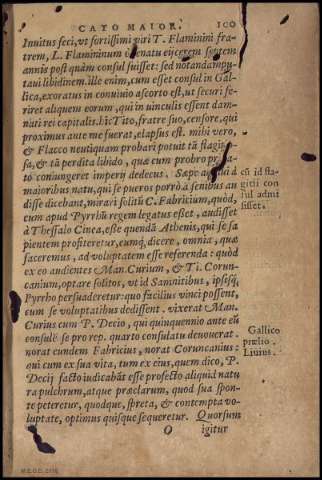 CATO MAIOR. 100
Inuitus feci, vt fortissimi viri T. Flaminini fra-
trem, L. Flamininum è senatu eijcerem septem
annis post quàm consul fuisset: sed notandam pu-
taui libidinem. ille enim, cum esset consul in Gal-
lica, exoratus in conuiuio à scorto est, ut securi fe-
riret aliquem eorum, qui in uinculis essent dam-
nati rei capitalis. hic Tito, fratre suo, censore, qui
proximus ante me fuerat, elapsus est. mihi vero,
& Flacco neutiquam probari potuit tã flagi
sa, & tã perdita libido, quæ cum probro pri to
coniungeret imperij dedecus. Sæpe audi à
maioribus natu, qui se pueros porrò à senibus au
disse dicebant, mirari solitũ C. Fabricium, quòd,
cum apud Pyrrhũ regem legatus esset, audisset
à Thessalo Cinea, esse quendã Athenis, qui se sa
pientem profiteretur, eumq; dicere, omnia, quæ
faceremus, ad voluptatem esse referenda: quòd
ex eo audientes Man. Curium, & Ti. Corun-
canium, optare solitos, vt id Samnitibus, ipsiq;
Pyrrho persuaderetur: quo facilius vinci possent,
cum se voluptatibus dedissent. vixerat Man.
Curius cum P. Decio, qui quinquennio ante eũ
consulē se pro rep. quarto consulatu deuouerat.
norat eundem Fabricius, norat Coruncanius:
qui cum ex sua vita, tum ex eius, quem dico, P.
Decij facto iudicabāt esse profecto aliquid natu
ra pulchrum, atque præclarum, quod sua spon-
te peteretur, quodque, spreta, & contempta vo-
luptate, optimus quisque sequeretur. Quorsum
O igitur
cũ id fla-
gitij con
sul admi
sisset.
Gallico
prælio.
Liuius.